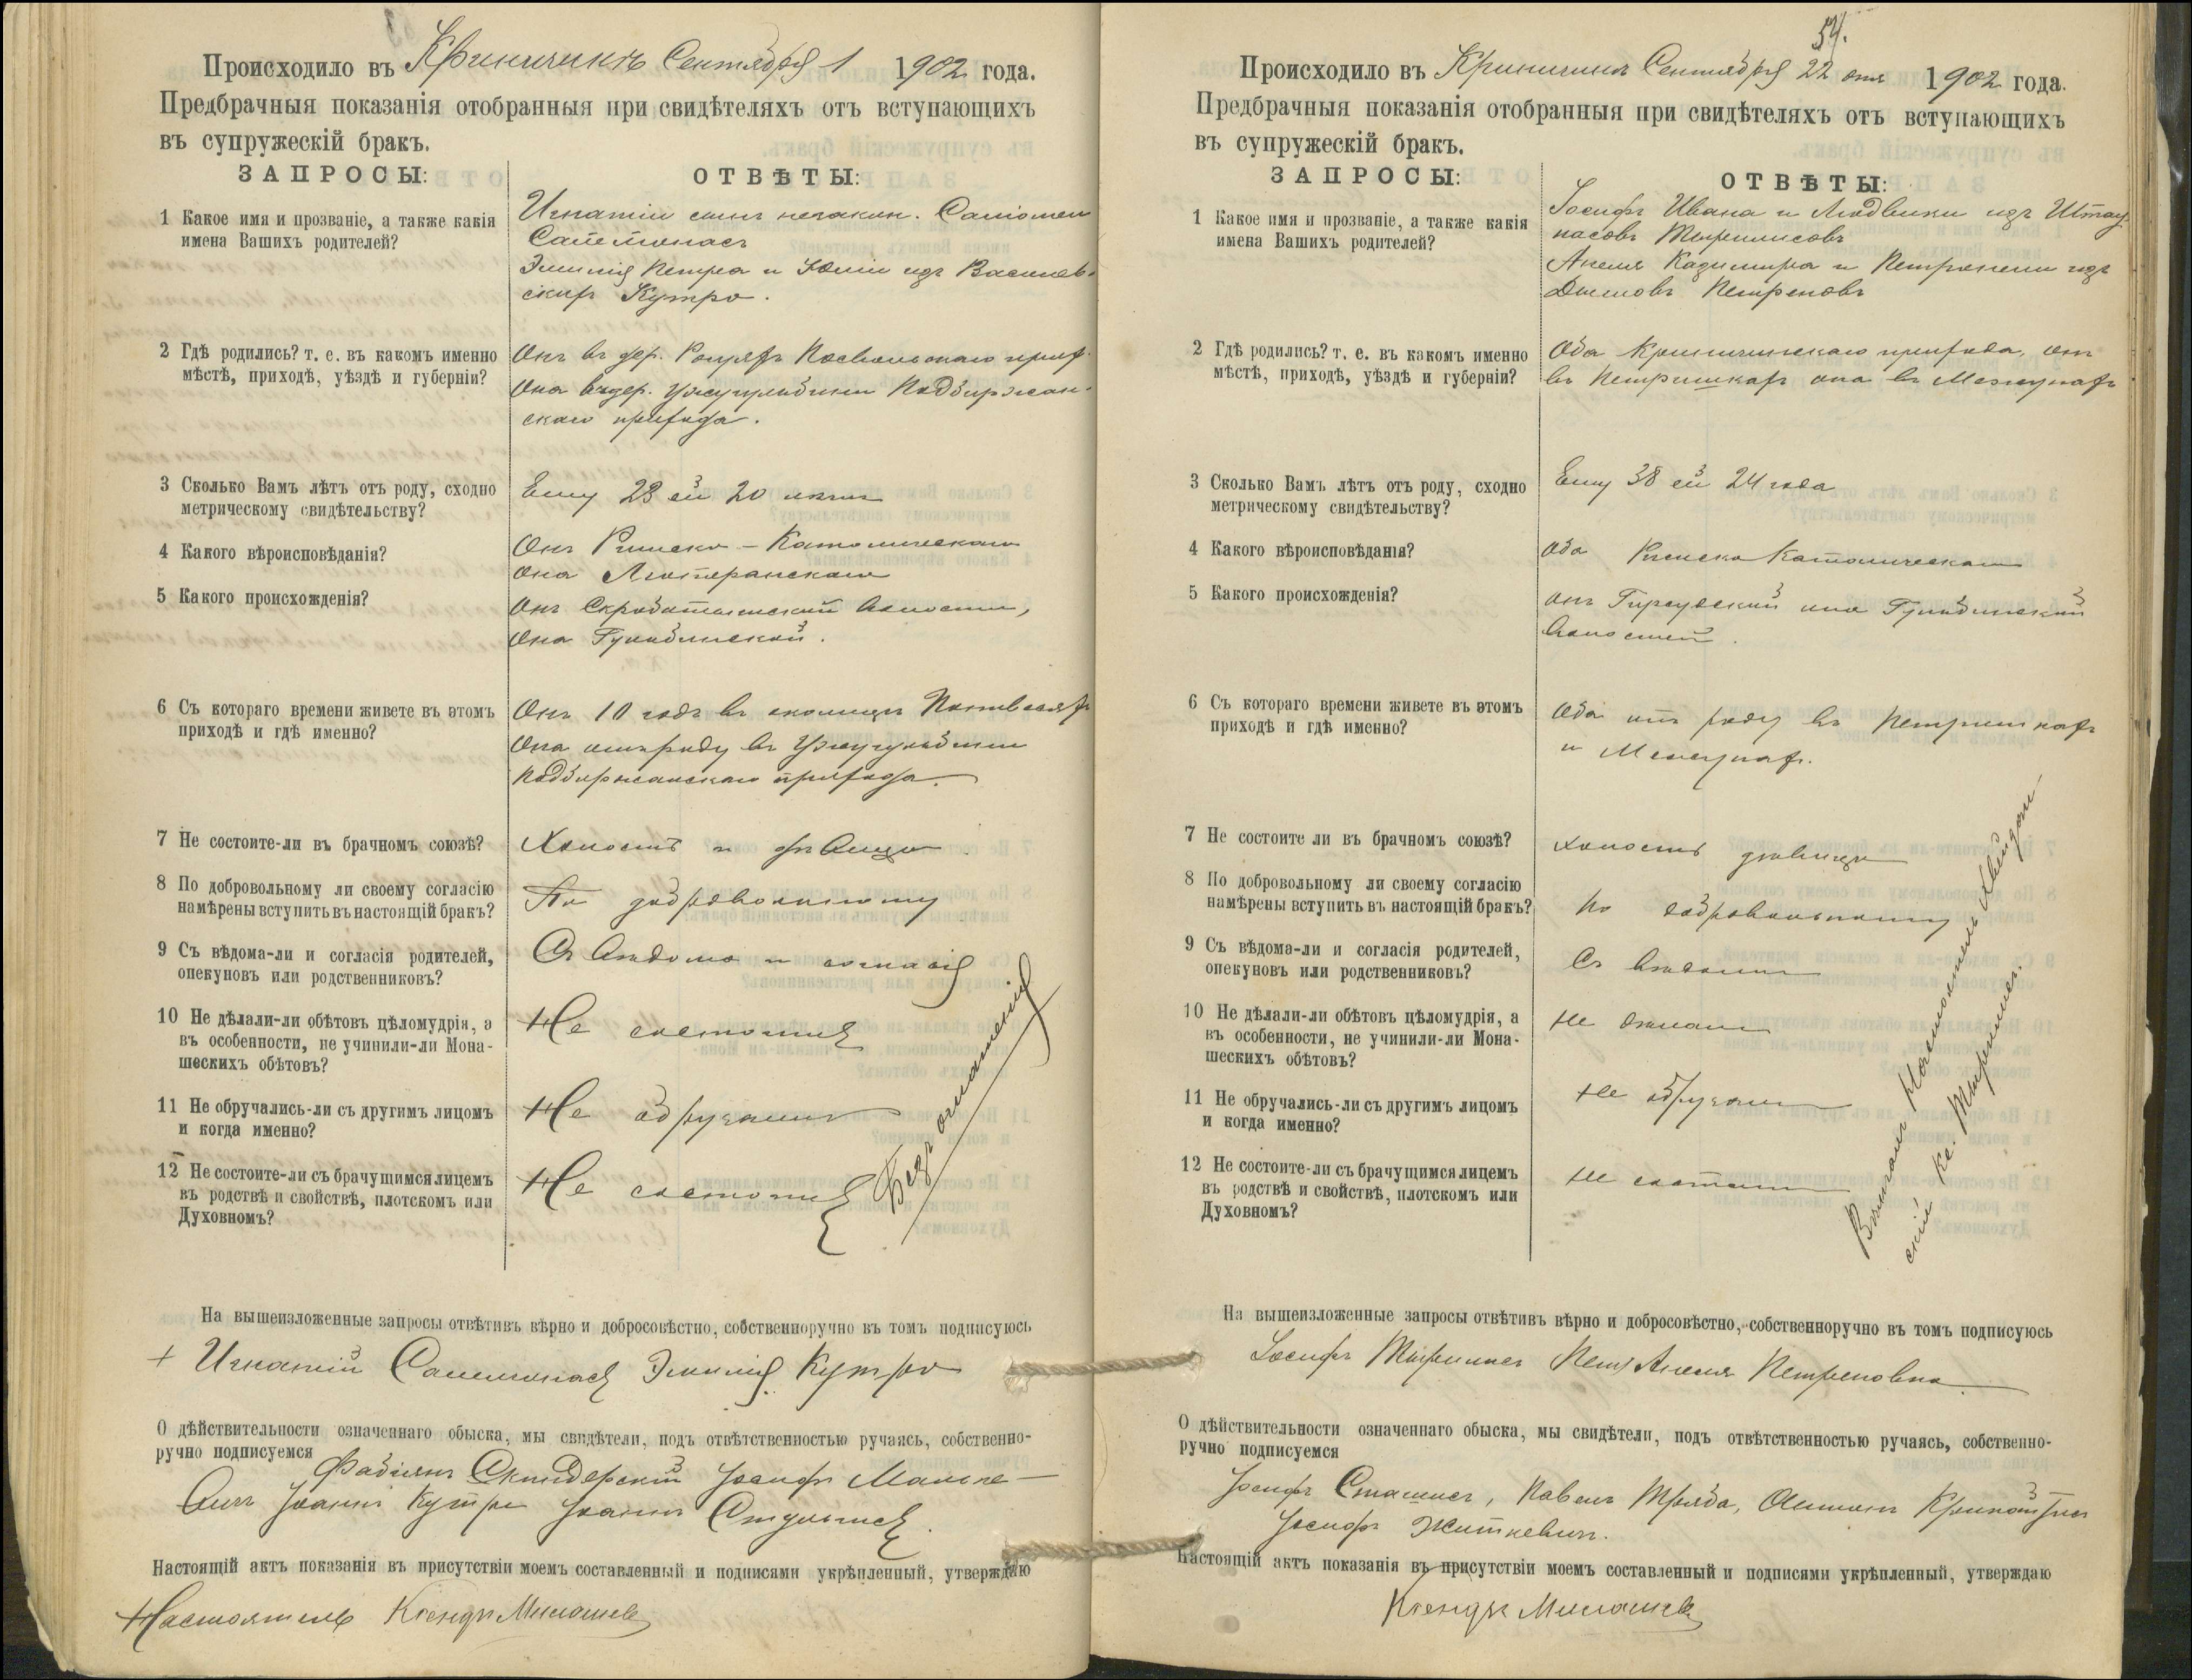 Происходило въ Криничинъ Сентября 1 1902 года.
Предбрачныя показанія отобранныя при свидѣтеляхъ отъ вступающихъ
въ супружескій бракъ.
ЗАПРОСЫ:
ОТВѢТЫ:
1 Какое имя и прозваніе, а также какія
имена Вашихъ родителей?
Игнатій сынъ незакон. Саломеи
Эмилія Петра и Юліи изъ Василев-
скихъ Кутро.
2 Гдѣ родились? т. е. въ какомъ именно
мѣстѣ, приходѣ, уѣздѣ и губерніи?
Онъ въ дер.
Она въ дер. Подбиржан-
скаго прихода.
3 Сколько Вамъ лѣтъ отъ роду, сходно
метрическому свидѣтельству?
Ему 23 ей 20 лѣтъ
4 Какого вѣроисповѣданія?
Онъ Римско-Католическаго
Она Лютеранскаго
5 Какого происхожденія?
Онъ Скробатишской волости,
Она Гулабинской.
6 Съ котораго времени живете въ этомъ
приходѣ и гдѣ именно?
Онъ 10 годъ въ околицѣ
Она отъ роду въ
Подбиржанскаго прихода.
7 Не состоите-ли въ брачномъ союзѣ?
Холостъ и дѣвица
8 По добровольному ли своему согласію
намѣрены вступить въ настоящій бракъ?
По добровольному
9 Съ вѣдома-ли и согласія родителей,
опекуновъ или родственниковъ?
Съ вѣдома и согласія
10 Не дѣлали-ли обѣтовъ цѣломудрія, а
въ особенности, не учинили-ли Мона-
шескихъ обѣтовъ?
Не
11 Не обручались-ли съ другимъ лицомъ
и когда именно?
Не обручались
12 Не состоите-ли съ брачущимся лицемъ
въ родствѣ и свойствѣ, плотскомъ или
Духовномъ?
Не
Безъ оглашенія
На вышеизложенные запросы отвѣтивъ вѣрно и добросовѣстно, собственноручно въ томъ подписуюсь
+ Игнатій Эмилія Кутро
О дѣйствительности означеннаго обыска, мы свидѣтели, подъ отвѣтственностью ручаясь, собственно-
ручно подписуемся
Фабіянъ Іосифъ
Іоаннъ Кутра Іоаннъ
Настоящій актъ показанія въ присутствіи моемъ составленный и подписями укрѣпленный, утверждаю
Настоятель Ксендзъ
54.
Происходило въ Криничинъ Сентября 22 дня 1902 года.
Предбрачныя показанія отобранныя при свидѣтеляхъ отъ вступающихъ
въ супружескій бракъ.
ЗАПРОСЫ:
ОТВѢТЫ:
1 Какое имя и прозваніе, а также какія
имена Вашихъ родителей?
Іосифъ Ивана и Людвики изъ
Анеля Казимира и Петронели изъ
Петреновъ
2 Гдѣ родились? т. е. въ какомъ именно
мѣстѣ, приходѣ, уѣздѣ и губерніи?
Оба Криничинскаго прихода, онъ
въ Петришкахъ она въ
3 Сколько Вамъ лѣтъ отъ роду, сходно
метрическому свидѣтельству?
Ему 38 ей 24 года
4 Какого вѣроисповѣданія?
Оба Римско Католическаго
5 Какого происхожденія?
онъ она Гулабинской
волостей.
6 Съ котораго времени живете въ этомъ
приходѣ и гдѣ именно?
Оба отъ роду въ Петришкахъ
и
7 Не состоите ли въ брачномъ союзѣ?
холостъ дѣвица
8 По добровольному ли своему согласію
намѣрены вступить въ настоящій бракъ?
по добровольному
9 Съ вѣдома-ли и согласія родителей,
опекуновъ или родственниковъ?
Съ вѣдома
10 Не дѣлали-ли обѣтовъ цѣломудрія, а
въ особенности, не учинили-ли Мона-
шескихъ обѣтовъ?
не дѣлали
11 Не обручались-ли съ другимъ лицомъ
и когда именно?
не обручались
12 Не состоите-ли съ брачущимся лицемъ
въ родствѣ и свойствѣ, плотскомъ или
Духовномъ?
не
Вѣнчалъ Настоятель
скій Кс.
На вышеизложенные запросы отвѣтивъ вѣрно и добросовѣстно, собственноручно въ томъ подписуюсь
Іосифъ Анеля Петреновна
О дѣйствительности означеннаго обыска, мы свидѣтели, подъ отвѣтственностью ручаясь, собственно-
ручно подписуемся
Іосифъ Сташисъ, Павелъ
Іосифъ Житкевичъ.
Настоящій актъ показанія въ присутствіи моемъ составленный и подписями укрѣпленный, утверждаю
Ксендзъ